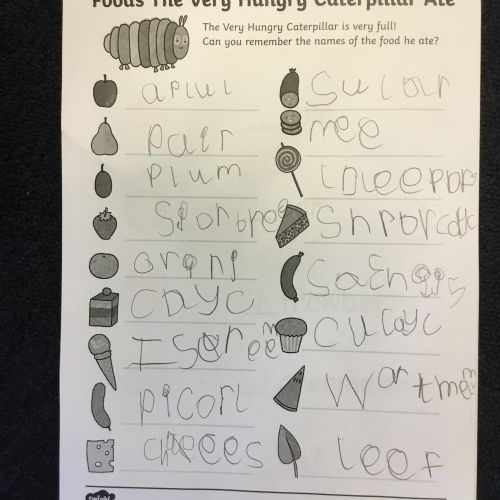 Foods The Very Hungry Caterpillar Ate
The Very Hungry Caterpillar is very full!
Can you remember the names of the food he ate?
aplul
pair
plum
Sporbres
oreng
cayc
Iscreem
picorl
cheees
Sulour
mee
Loleepop
Shporcac
Saengis
cucayc
Wortmeen
leef
twinkl